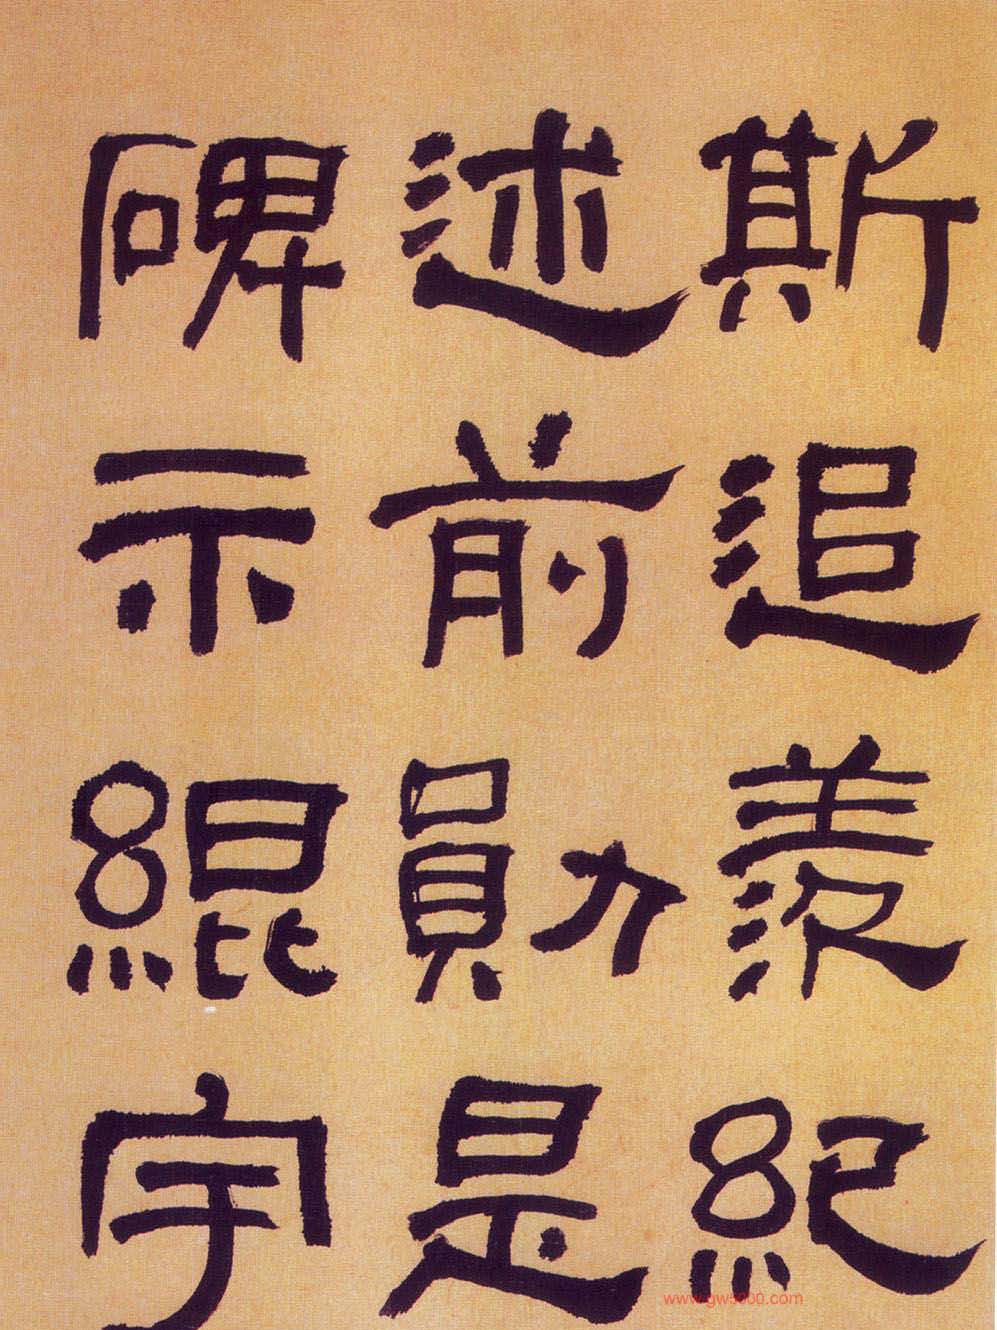 斯追羨紀
述前勛是
碑示緄宇
www.gw5000.com